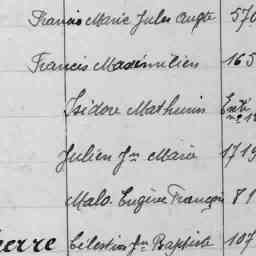 Francis Marie Jules Augte 570
Francis Maximilien 165
Isidore Mathurin
Julien Jn Marie 1719
Malo Eugène François 81
Célestin Jn Baptiste 107